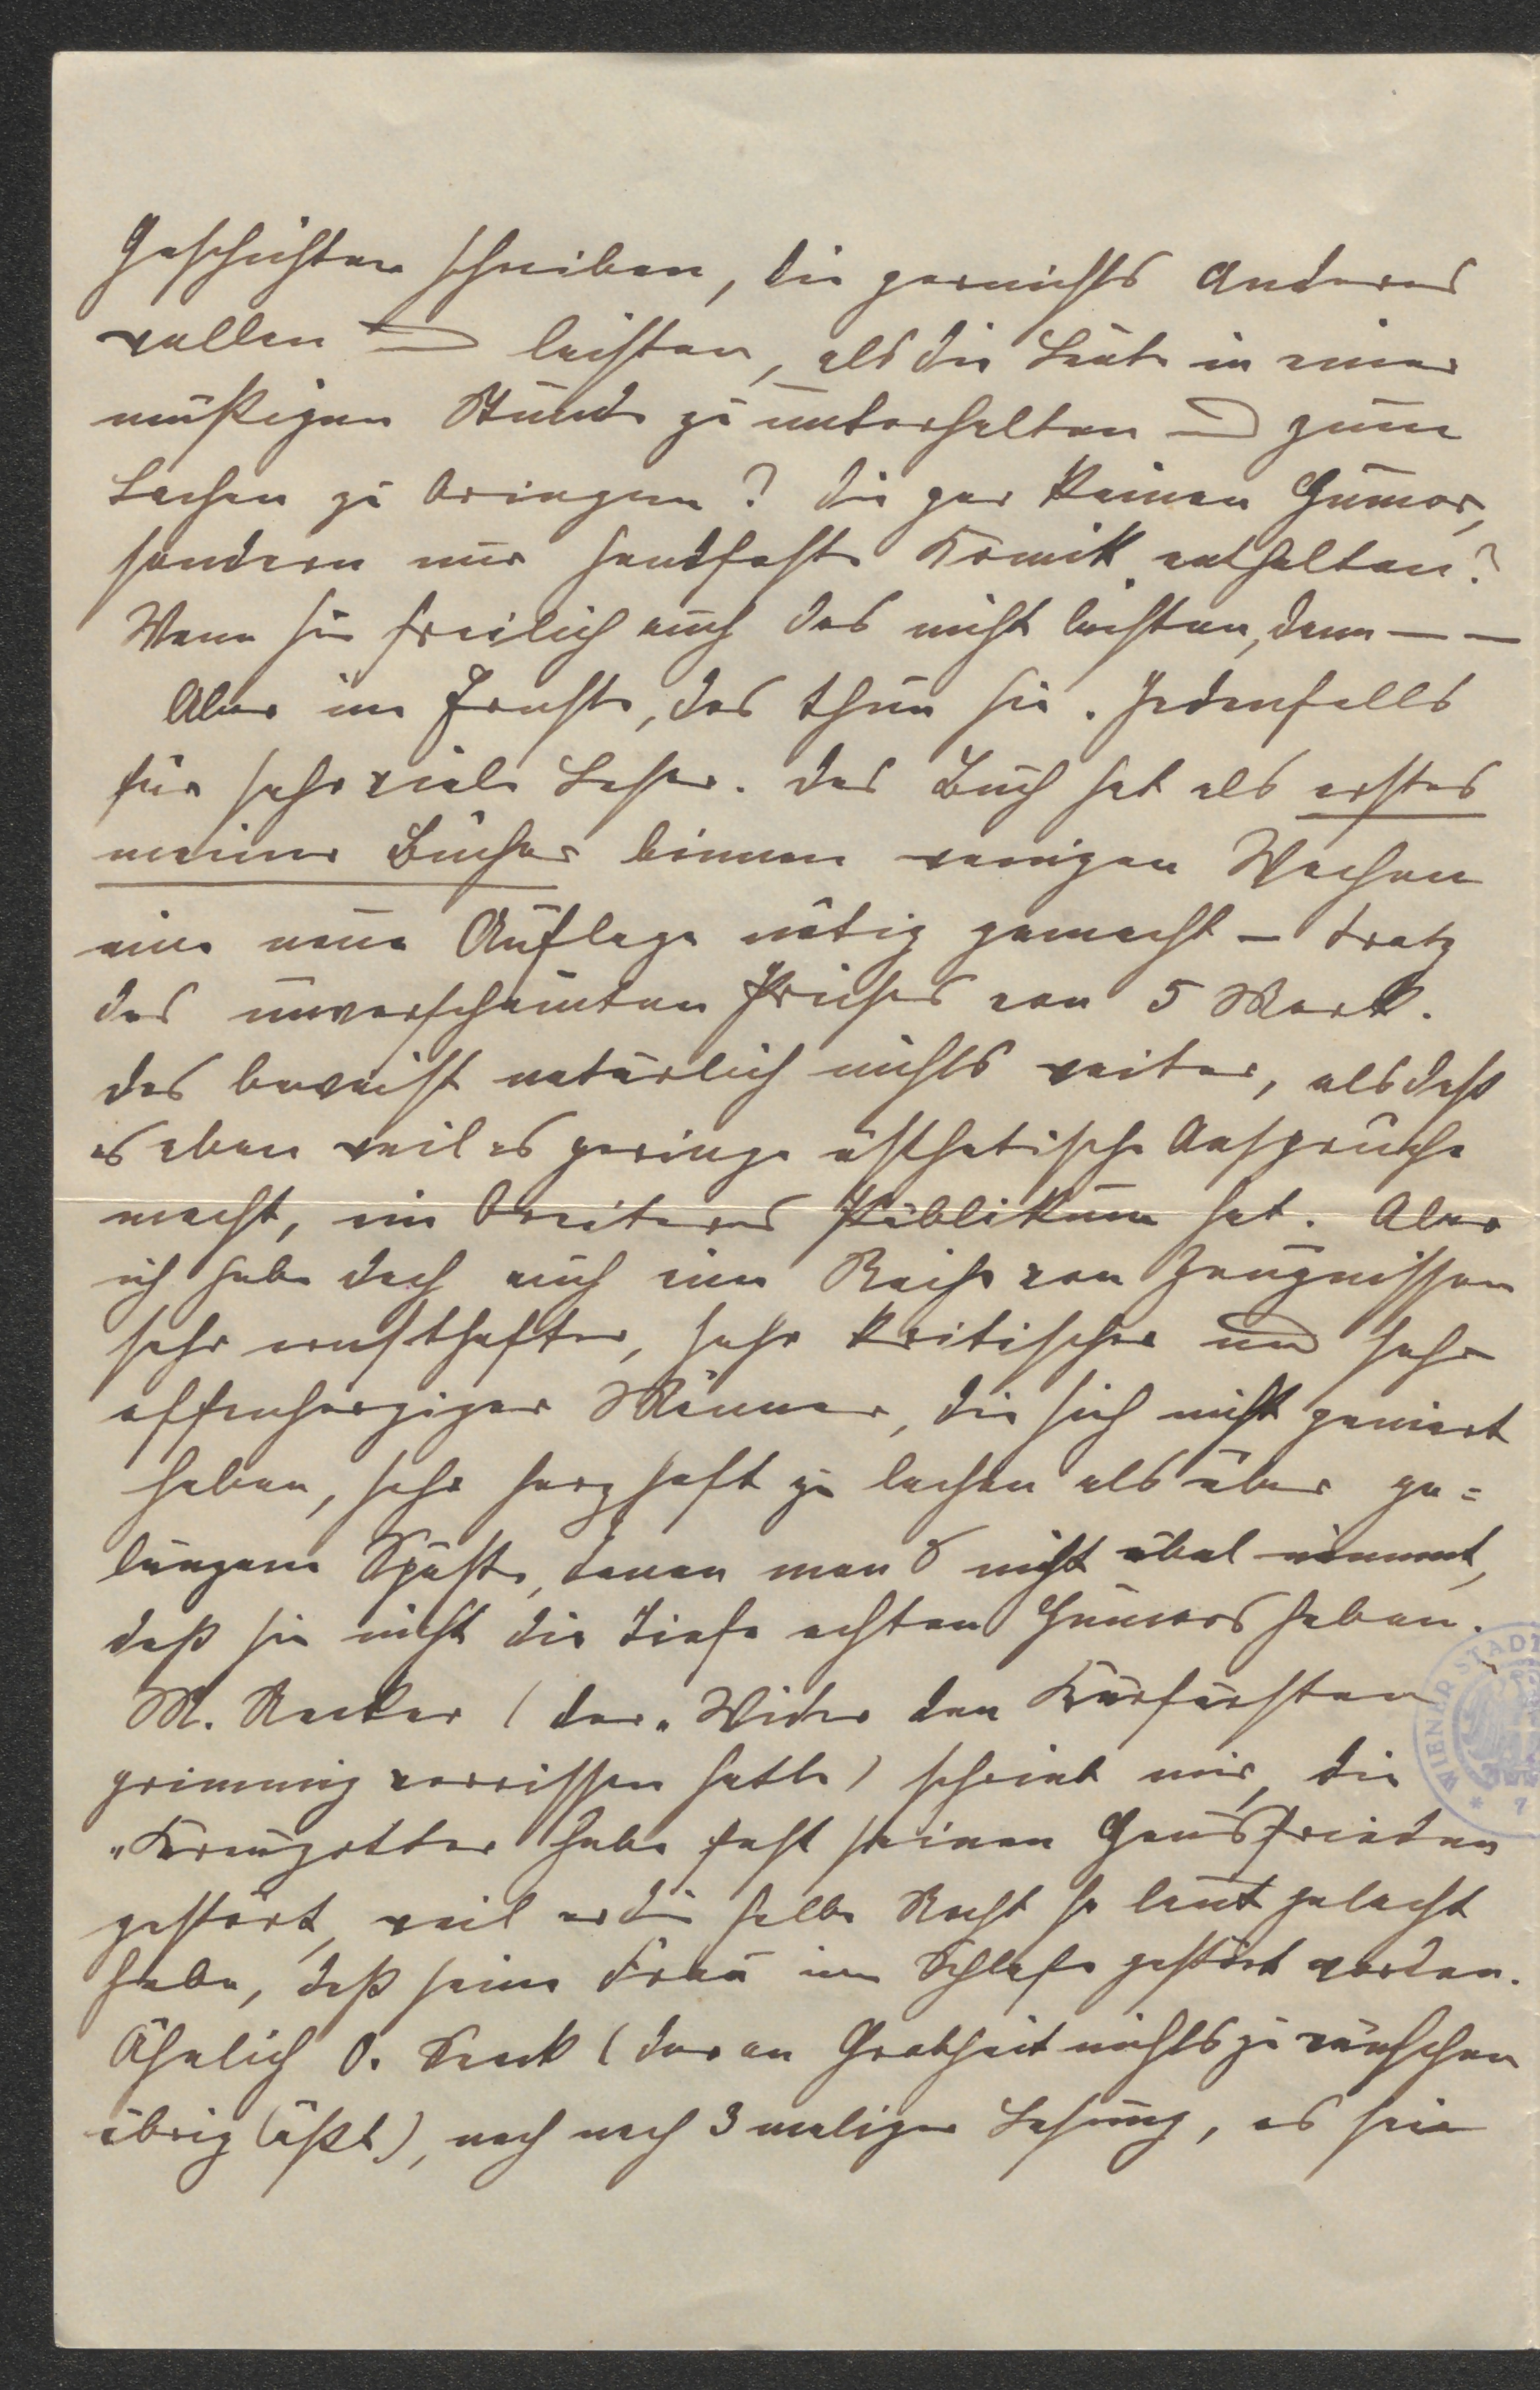 Geschichten schreiben, die garnichts Anderes
wollen und leisten, als die Leute in einer
müßigen Stunde zu unterhalten und zum
Lachen zu bringen? die gar keinen Humor,
sondern nur handfeste Komik enthalten?
Wenn sie freilich auch das nicht leisten, dann — —
Aber im Ernste, das thun sie. Jedenfalls
für sehr viele Leser. Das Buch hat als erstes
meiner Bücher binnen wenigen Wochen
eine neue Auflage nötig gemacht – trotz
des unverschämten Preises von 5 Mark.
Das beweist natürlich nichts weiter, als daß
es eben weil es geringe ästhetische Ansprüche
macht, ein breiteres Publikum hat. Aber
ich habe doch auch eine Reihe von Zeugnissen
sehr ernsthafter, sehr kritischer und sehr
offenherziger Männer, die sich nicht geniert
haben, sehr herzhaft zu lachen als über ge=
lungene Späße, denen man es nicht übel nimmt,
daß sie nicht die Tiefe echten Humors haben.
M. Necker (der „Wider den Kurfürsten
grimmig verrissen hatte) schrieb mir, die
„Kreuzotter habe fast seinen Hausfrieden
gestört, weil er die halbe Nacht so laut gelacht
habe, daß seine Frau im Schlafe gestört worden.
Ähnlich O. Seeck (der an Grobheit nichts zu wünschen
übrig läßt), noch nach 3 maliger Lesung, es sei
WIENER STADT